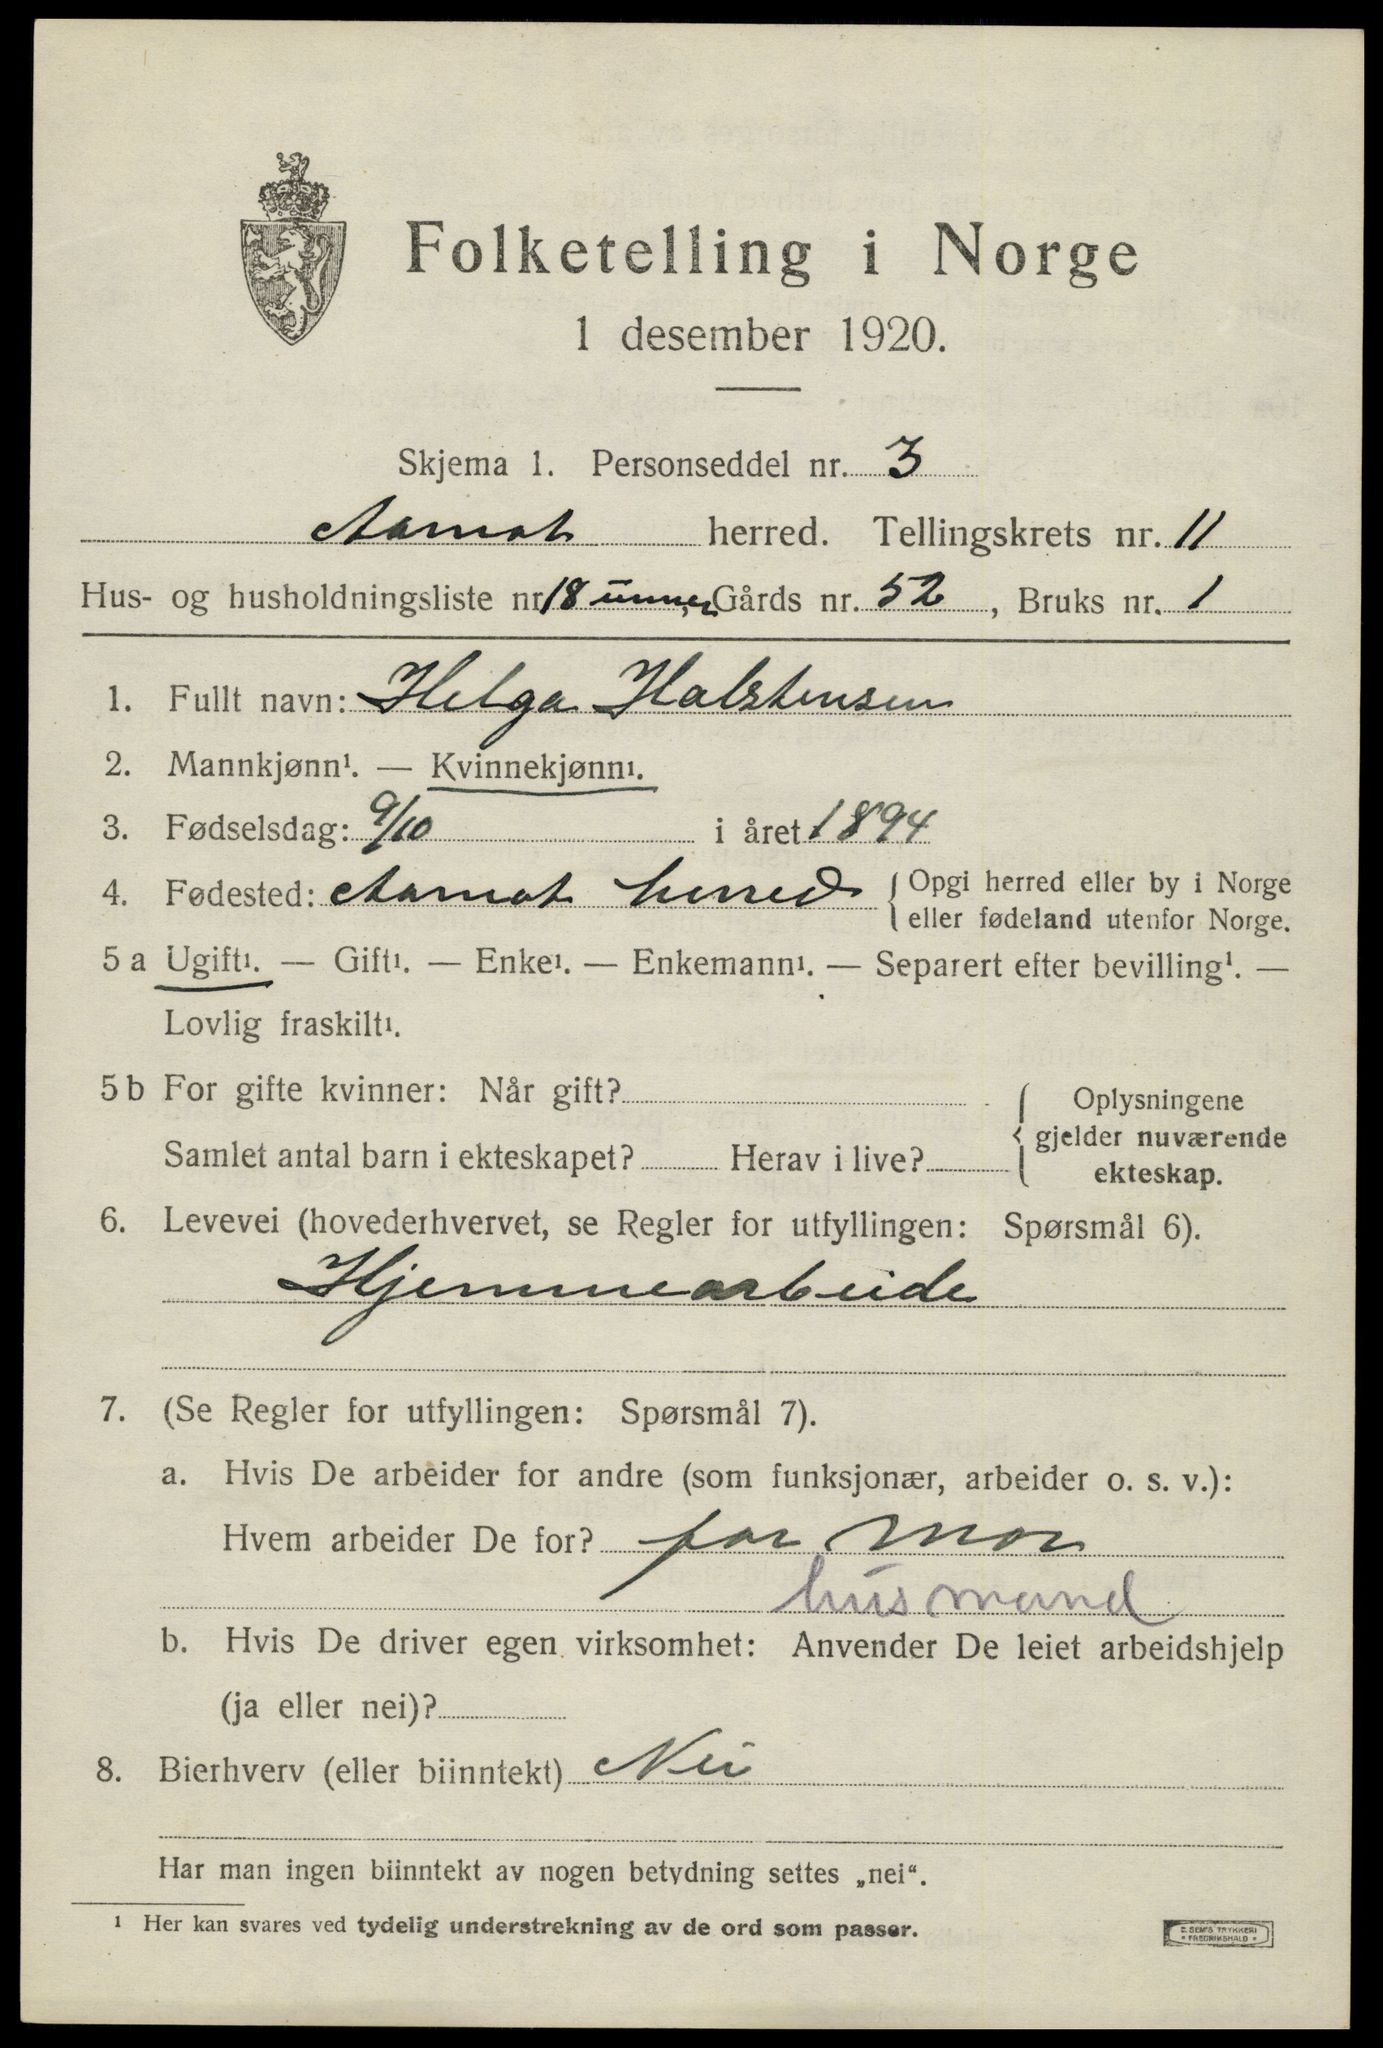 Folketelling i Norge
1 desember 1920.
Skjema 1. Personseddel nr. 3
Aamot herred. Tellingskrets nr. 11
Hus- og husholdningsliste nr. 18 Gårds nr. 52, Bruks nr. 1
1. Fullt navn: Helga Halstensen
2. Mannkjønn¹. — Kvinnekjønn¹.
3. Fødselsdag: 9/10 i året 1894
4. Fødested: Aamot herred { Opgi herred eller by i Norge
eller fødeland utenfor Norge.
5 a Ugift¹. — Gift¹. — Enke¹. — Enkemann¹. — Separert efter bevilling¹. —
Lovlig fraskilt¹.
5 b For gifte kvinner: Når gift? { Oplysningene
gjelder nuværende
Samlet antal barn i ekteskapet? Herav i live?
ekteskap.
6. Levevei (hovederhvervet, se Regler for utfyllingen: Spørsmål 6).
Hjemmearbeide
7. (Se Regler for utfyllingen: Spørsmål 7).
a. Hvis De arbeider for andre (som funksjonær, arbeider o. s. v.):
Hvem arbeider De for? for mor
husmand
b. Hvis De driver egen virksomhet: Anvender De leiet arbeidshjelp
(ja eller nei)?
8. Bierhverv (eller biinntekt) Nei
Har man ingen biinntekt av nogen betydning settes „nei“.
¹ Her kan svares ved tydelig understrekning av de ord som passer.
E. SEM'S TRYKKERI
• FREDRIKSHALD •